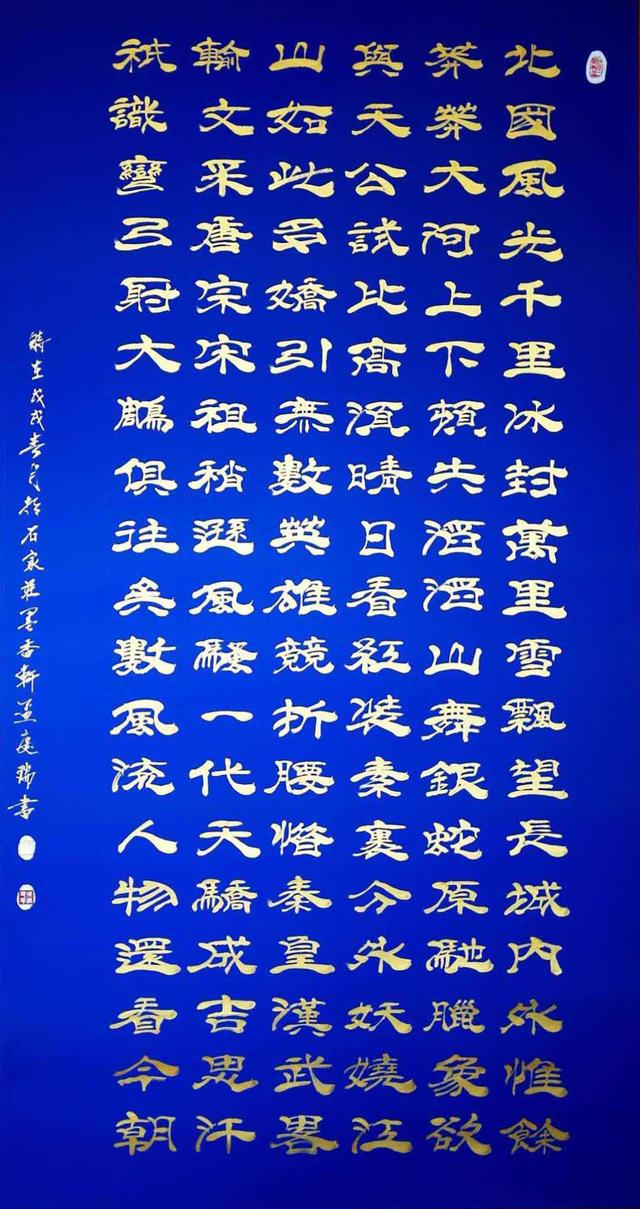 北國風光千里冰封萬里雪飄望長城內外惟餘
莽莽大河上下頓失滔滔山舞銀蛇原馳臘象欲
與天公試比高須晴日看紅裝素裹分外妖嬈江
山如此多嬌引無數英雄競折腰惜秦皇漢武畧
輸文采唐宗宋祖稍遜風騷一代天驕成吉思汗
祇識彎弓射大鵰俱往矣數風流人物還看今朝
時在戊戌春月於石家莊墨香軒庭瑞書